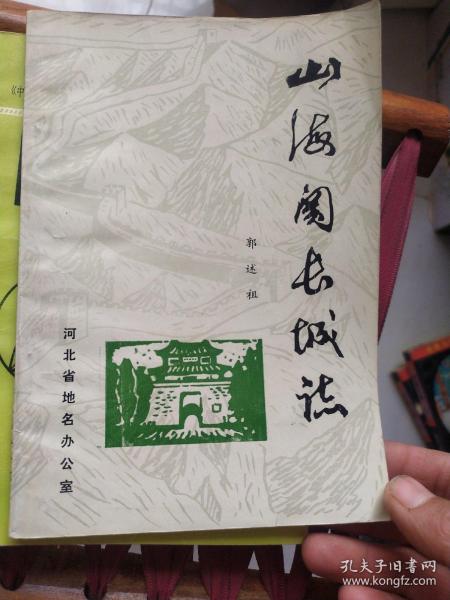 山海関长城誌
郭述祖
河北省地名办公室
《中
孔夫子旧书网
www.kongfz.com